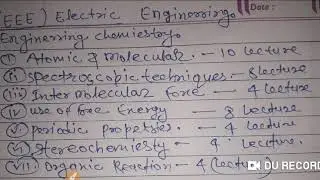 (EEE) Electric Enginerring.
Date :
Enginerring chemiestry.
(i) Atomic & molecular. — 10 lecture
(ii) spectroscopic techniques - 8 lecture
(iii) Inter molecular force - 4 lecture
(iv) use of free Energy - 8 lecture
(v) periodic propetries. - 4 lecture
(vi) stereochemiesty - 4 lecture.
(vii) Organic Reaction - 4 (lecture)
DU RECORD